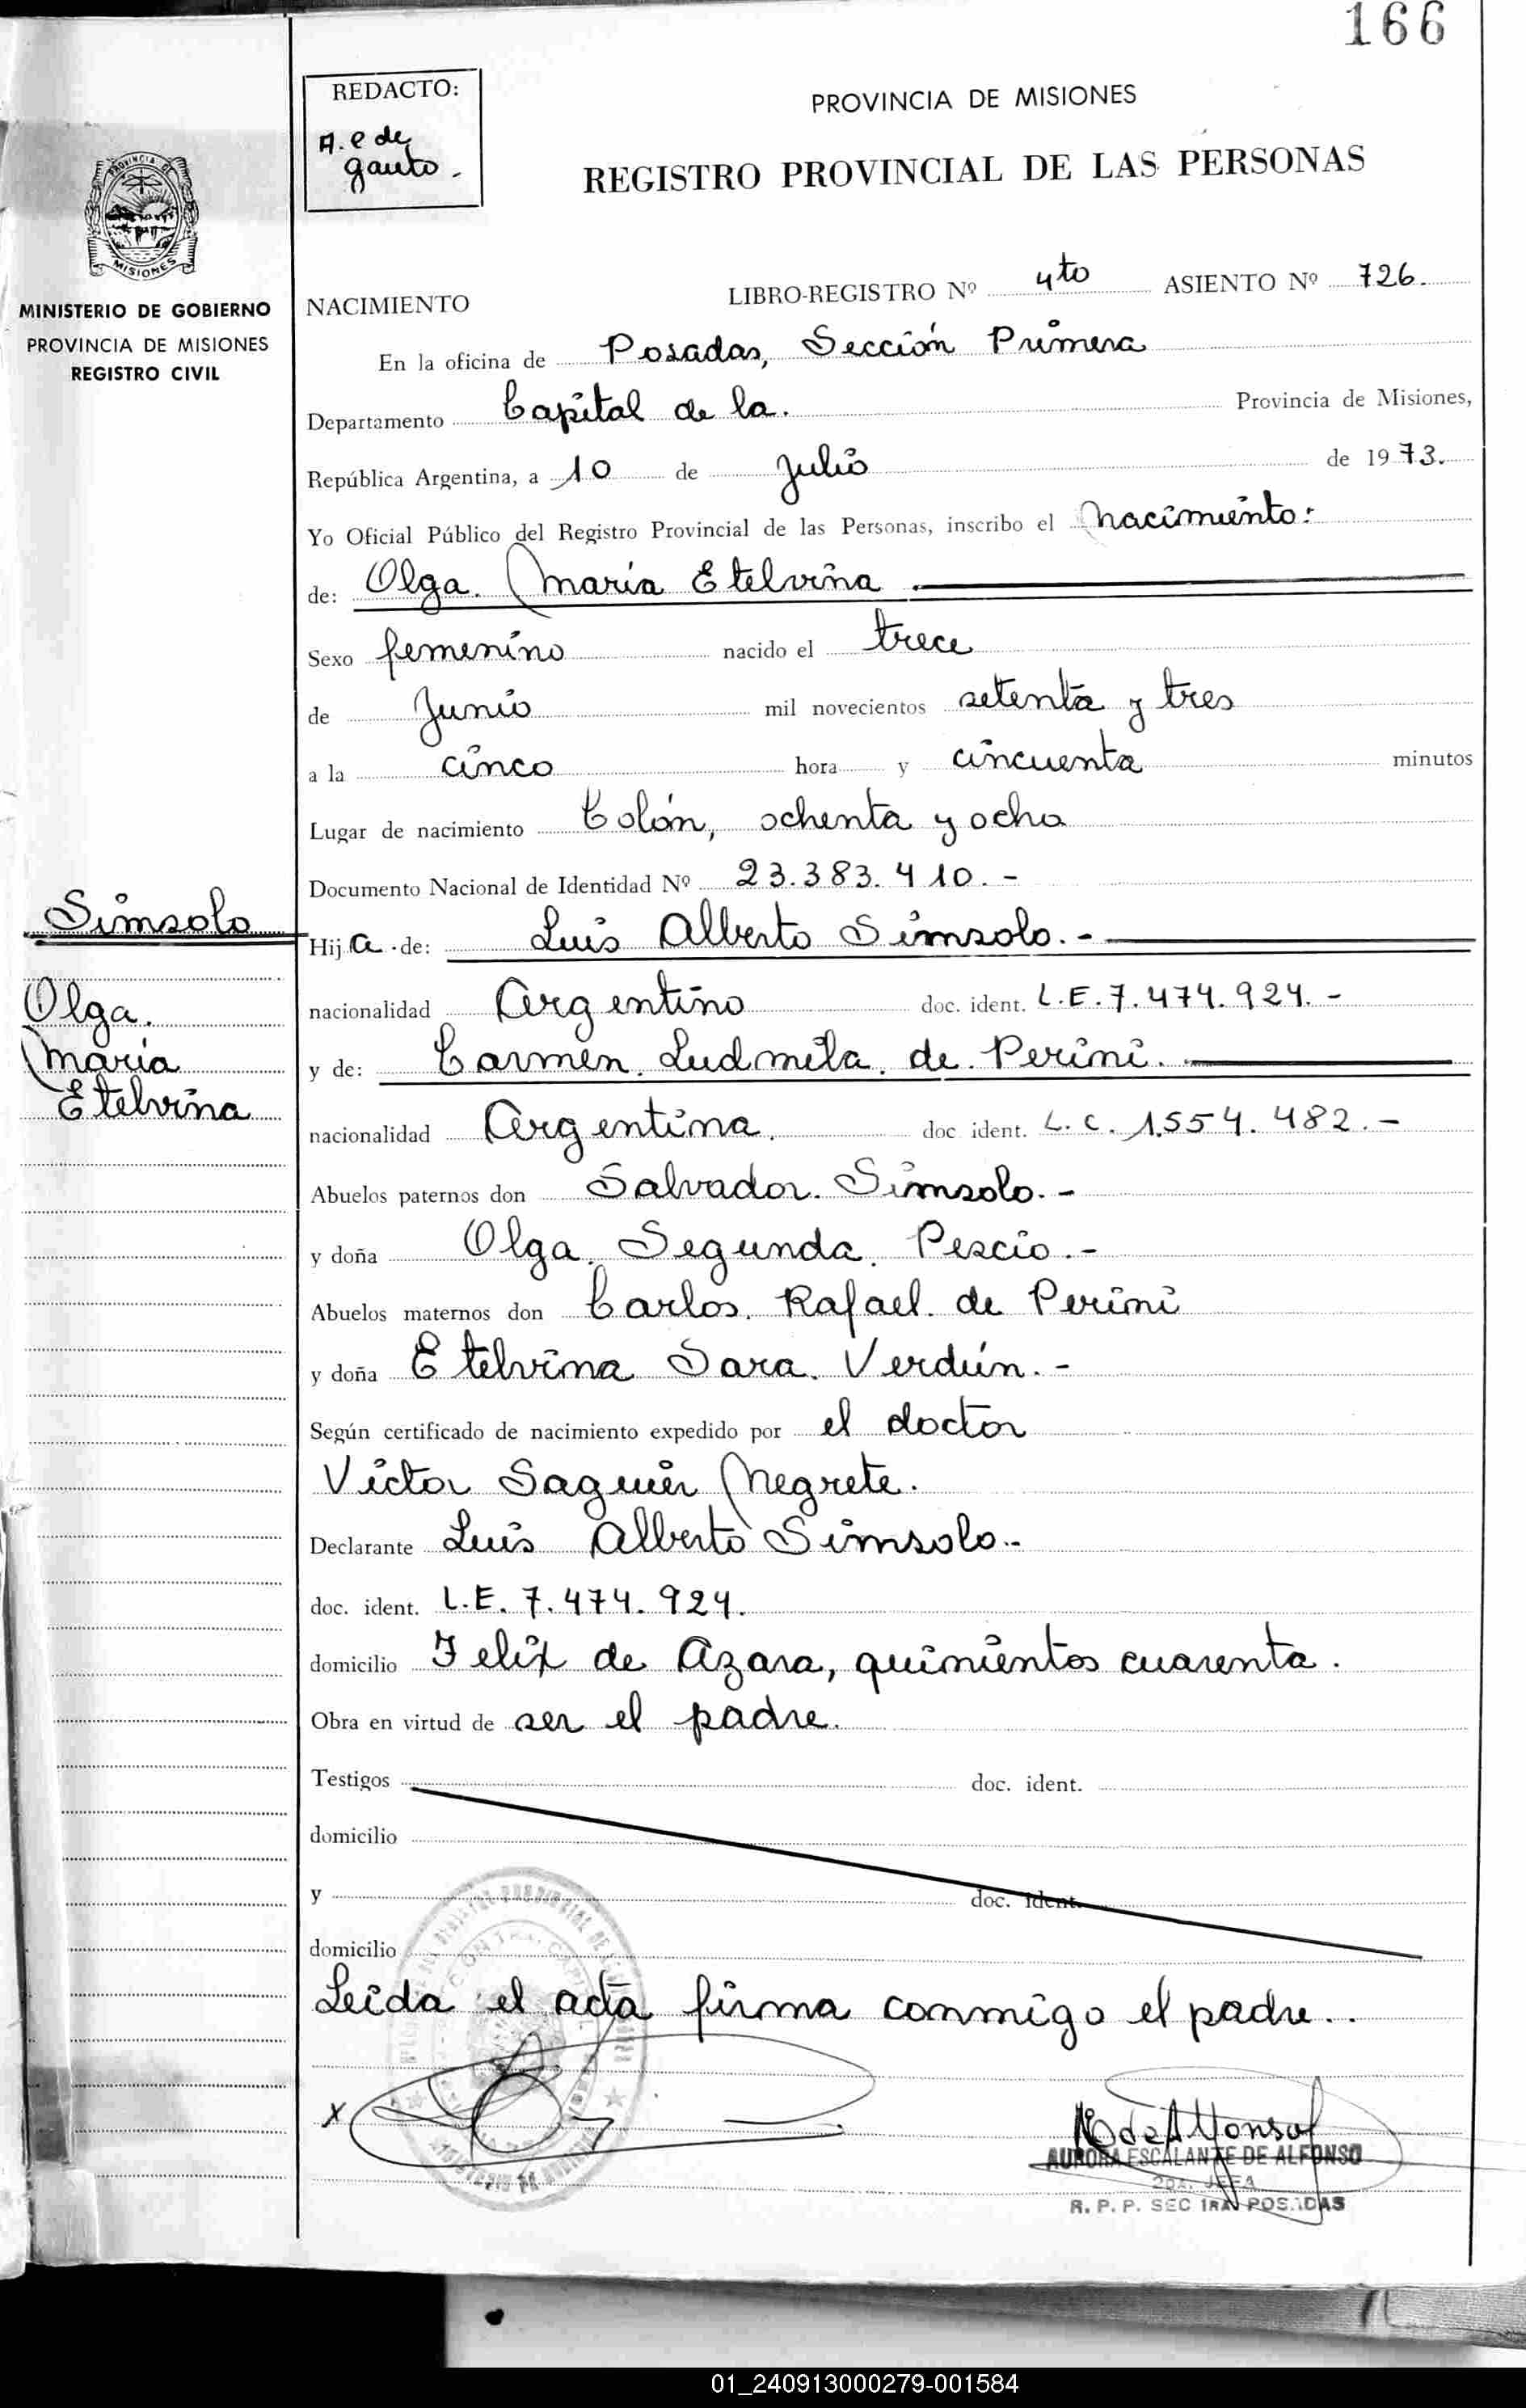 166
REDACTO:
A. e de
gauto.
PROVINCIA DE MISIONES
REGISTRO PROVINCIAL DE LAS PERSONAS
PROVINCIA DE
MISIONES
MINISTERIO DE GOBIERNO
PROVINCIA DE MISIONES
REGISTRO CIVIL
NACIMIENTO
LIBRO-REGISTRO Nº 4to ASIENTO Nº 726.
En la oficina de Posadas, Sección Primera
Departamento Capital de la. Provincia de Misiones,
República Argentina, a 10 de Julio de 1973.
Yo Oficial Público del Registro Provincial de las Personas, inscribo el Nacimiento:
de: Olga. María Etelvina
Sexo femenino nacido el trece
de Junio mil novecientos setenta y tres
a la cinco hora y cincuenta minutos
Lugar de nacimiento Colón, ochenta y ocho
Documento Nacional de Identidad Nº 23.383.410.-
Simsolo
Olga.
María
Etelvina
Hija de: Luis Alberto Simsolo.-
nacionalidad Argentino doc. ident. L.E.7.474.924.-
y de: Carmen. Ludmila. de Perini.
nacionalidad Argentina. doc ident. L.C. 1.554.482.-
Abuelos paternos don Salvador. Simsolo.-
y doña Olga. Segunda. Pescio.-
Abuelos maternos don Carlos. Rafael. de Perini
y doña Etelvina Sara. Verdún.-
Según certificado de nacimiento expedido por el doctor
Victor Saguier Negrete.
Declarante Luis Alberto Simsolo.-
doc. ident. L.E. 7.474.924.
domicilio Felix de Azara, quinientos cuarenta.
Obra en virtud de ser el padre.
Testigos doc. ident.
domicilio
y doc. ident.
domicilio
Leida el acta firma conmigo el padre..
X
AdeAlfonso
AURORA ESCALANTE DE ALFONSO
2da. JEFA
R. P. P. SEC 1RA POSADAS
01_240913000279-001584